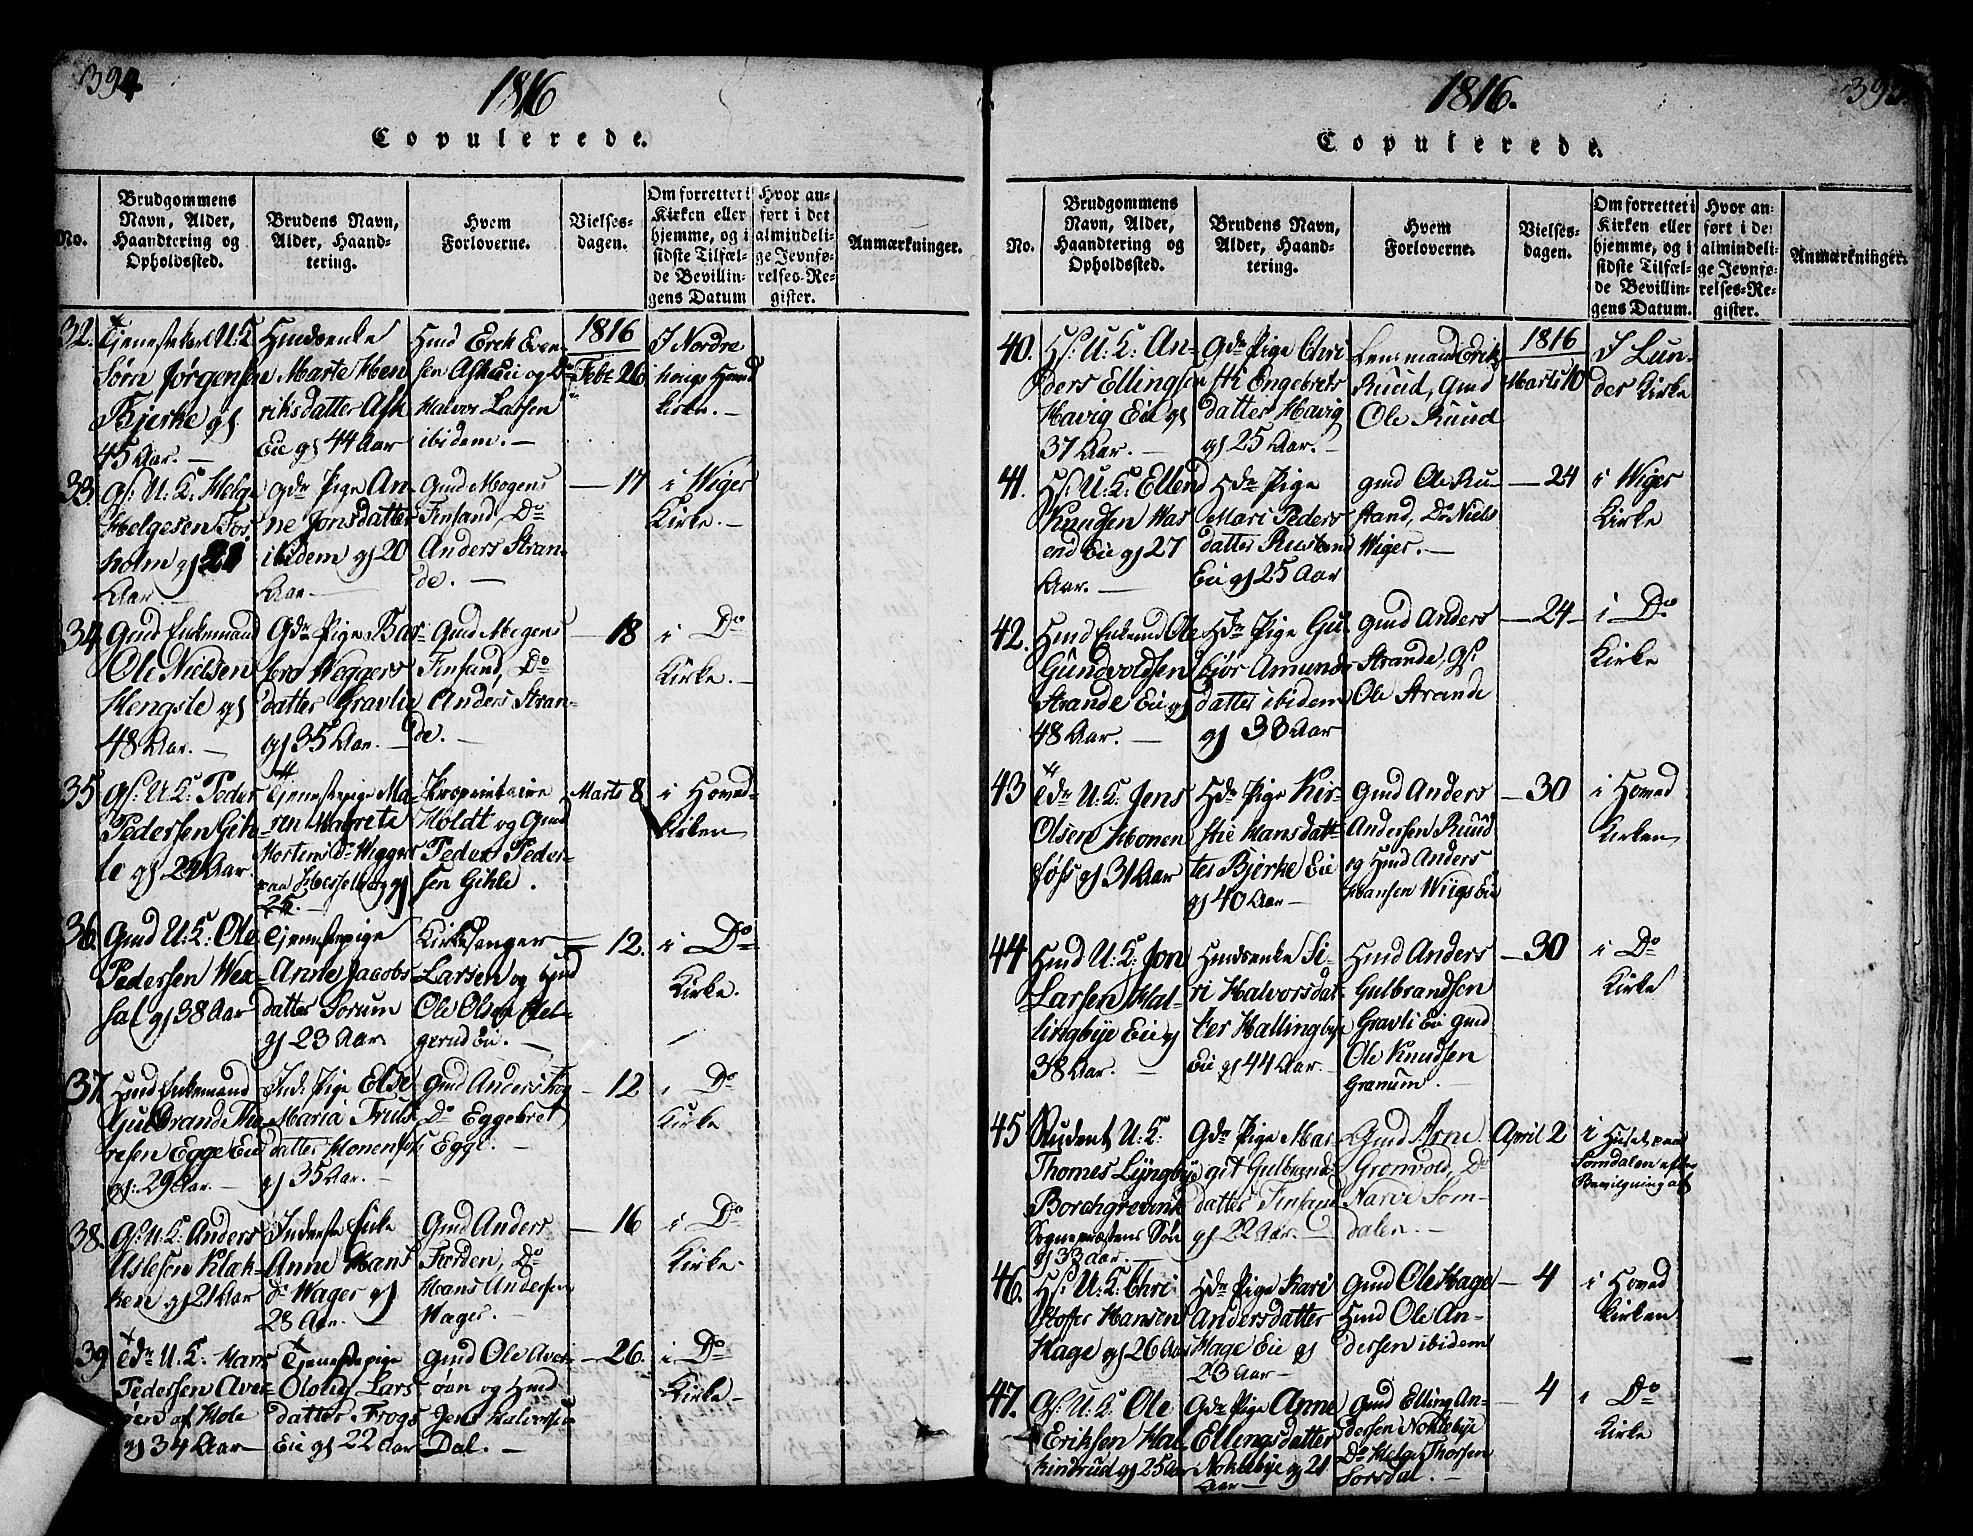 394
1816
Copulerede.
No.
Brudgommens
Navn, Alder,
Haandtering og
Opholdssted.
Brudens Navn,
Alder, Haand-
tering.
Hvem
Forloverne.
Vielses-
dagen.
Om forrettet i
Kirken eller
hjemme, og i
sidste Tilfæl-
de Bevillin-
gens Datum
Hvor an-
ført i det
almindeli-
ge Jevnfø-
relses-Re-
gister.
Anmærkninger.
32.
Tjenestekarl U: K
Sørn Jørgensen
Bjerke gs
45 Aar. —
Huusenke
Marte Hen
riksdatter Ask
Eie gs 44 Aar
Hmd Erik Even-
sen Askeie og Do
Halvor Larsen
ibidem. —
1816
Febr 26
I Nordre
Hoved
Kirke. —
33.
Gs: U: K: Helge
Helgesen Fos
holm gs 21
Aar. —
Gdr Pige An-
ne Jonsdatter
ibidem gs 20
Aar. —
Gmd Mogens
Finsand, Do
Anders Stran-
de. —
— 17
i Wiger
Kirke. —
34
Gmd Enkemand
Ole Nielsen
Hengsle gs
48 Aar. —
Gdr Pige Bar-
bro Weggers
datter Gravlie
gs 35 Aar. —
Gmd Mogens
Finsand, Do
Anders Stran-
de. —
— 18
i Do
Kirke. —
35
Gs: U: K: Peder
Pedersen Gih-
le gs 29 Aar.
Tjenestepige Ma-
ren Magrete
Mortens Dr Wigger
paa Hesselberg gs
25. —
Proprietaire
Holdt og Gmd
Peder Peder-
sen Gihle.
Marts 8
i Hoved-
Kirken
36.
Gmd U: K: Ole
Pedersen Wex-
sal gs 38 Aar
Tjenestepige
Anne Jacobs
datter Sorum
gs 23 Aar
Kirkesanger
Larsen og Hmd
Ole Olsen Hel-
gerud Eie. —
— 12.
i Do
Kirke.
37.
Hmd Enkemand
Gulbrand Tho
resen Egge Eie
gs: 29 Aar. —
Ind. Pige Else
Maria Truls
datter Honenfos
gs 35 Aar. —
Gmd Anders Fog
Do Eggebret
Egge. —
— 12
i Do
Kirke
38.
Gs: U: K: Anders
Aslesen Klæk-
ken gs 21 Aar
Inderste Enke
Anne Hans
Dr Wager gs
28 Aar.
Gmd Anders
Færden, Do
Hans Andersen
Wager. —
— 16
i Do
Kirke.
39
U: K: Hans
Pedersen Aver-
øen af Hole
gs 34 Aar
Tjenestepige
Oloug Lars
datter Frogs
Eie gs 22 Aar
Gmd Ole Aver-
øen og Hmd
Jens Halvorsen
Dal. —
— 26.
i Do
Kirke —
395.
1816.
Copulerede.
No.
Brudgommens
Navn, Alder,
Haandtering og
Opholdssted.
Brudens Navn,
Alder, Haand-
tering.
Hvem
Forloverne.
Vielses-
dagen.
Om forrettet i
Kirken eller
hjemme, og i
sidste Tilfæl-
de Bevillin-
gens Datum.
Hvor an-
ført i det
almindeli-
ge Jevnfø-
relses-Re-
gister.
Anmærkninger.
40.
Hs: U: K: An-
ders Ellingsen
Havig Eie gs
37 Aar. —
Gdr Pige Chri
sti Engebrets
datter Havig
gs 25 Aar. —
Lensmand Erik
Ruud, Gmd
Ole Ruud
1816
Marts 10
I Lun-
der Kirke
41.
Hs: U: K: Ellend
Knudsen Was
end Eie gs 27
Aar. —
Hdr Pige
Mari Peders
datter Rustand
Eie gs 25 Aar
Gmd Ole Ru-
stand, Do Niels
Wiger. —
— 24
i Wiger
Kirke
42.
Hmd Enkemd Ole
Gundvoldsen
Strande Eie gs
48 Aar. —
Hdr Pige Gu-
bjør Amunds
datter ibidem
gs 33 Aar
Gmd Anders
Strande, Gs:
Ole Strande
— 24 —
i Do
Kirke
43
U: K: Jens
Olsen Honen
føss gs 31 Aar
Hdr Pige Kir-
stie Hansdatt-
ter Bjerke Eie
gs 40 Aar —
Gmd Anders
Andersen Ruud
og Hmd Anders
Hansen Wiigs Eie
— 30
i Hoved
Kirken
44
Hmd U: K: Jon
Larsen Hal-
lingbye Eie gs
38 Aar. —
Huusenke Si-
ri Halvorsdat-
ter Hallingbye
Eie gs 44 Aar. —
Hmd Anders
Gulbrandsen
Gravli Eie Gmd
Ole Knudsen
Granum. —
— 30
i Do
Kirke
45
Student U: K:
Thomes Lyngbye
Borchgrevink
Sognepræstens Søn
gs 33 Aar. —
Gdr Pige Mar-
git Gulbrands
datter Finsand
gs 22 Aar. —
Gmd Arne
Gronvold, Do
Narve Som-
dalen. —
April 2
i Huset paa
Somdalen efter
Bevilgning af
46.
Hs: U: K: Chri
stoffer Hansen
Hage gs 26 Aar
Hdr Pige Kari
Andersdatter
Hage Eie gs
23 Aar —
Gmd Ole Hage
Hmd Ole An-
dersen ibidem
— 4
i Hoved
Kirken
47.
Gs: U: K: Ole
Eriksen Hal
kindrud gs 25 Aar
Gdr Pige Anne
Ellingsdatter
Noklebye gs 21
Aar —
Gmd Elling An-
dersen Noklebye
Do Helge Thorsen
Sorsdal. —
4
i Do
Kirke